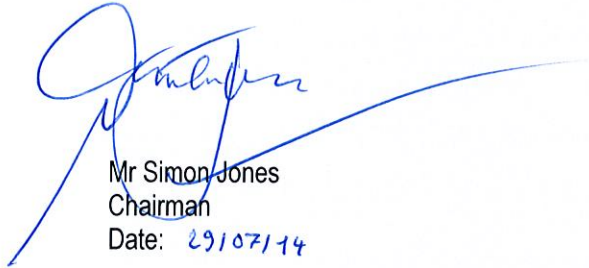 Mr Simon Jones
Chairman
Date: 29/07/14